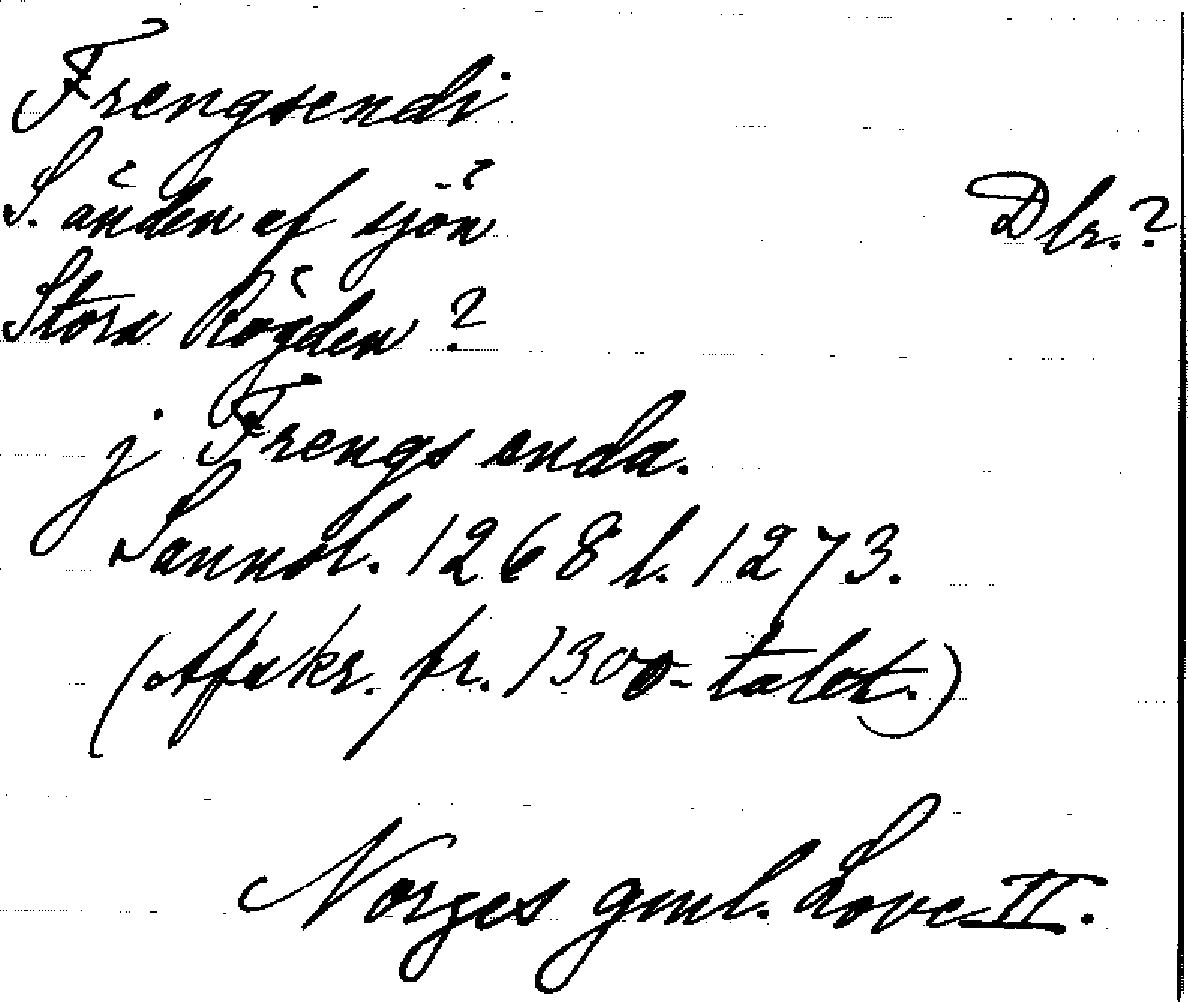 Frengsendi
S. änden af sjön
Dlr.?
Stora Rögden ?
j Frengs enda.
Sannol. 1268 l. 1273.
(Afskr. fr. 1300-talet.)
Norges gml. Love II.